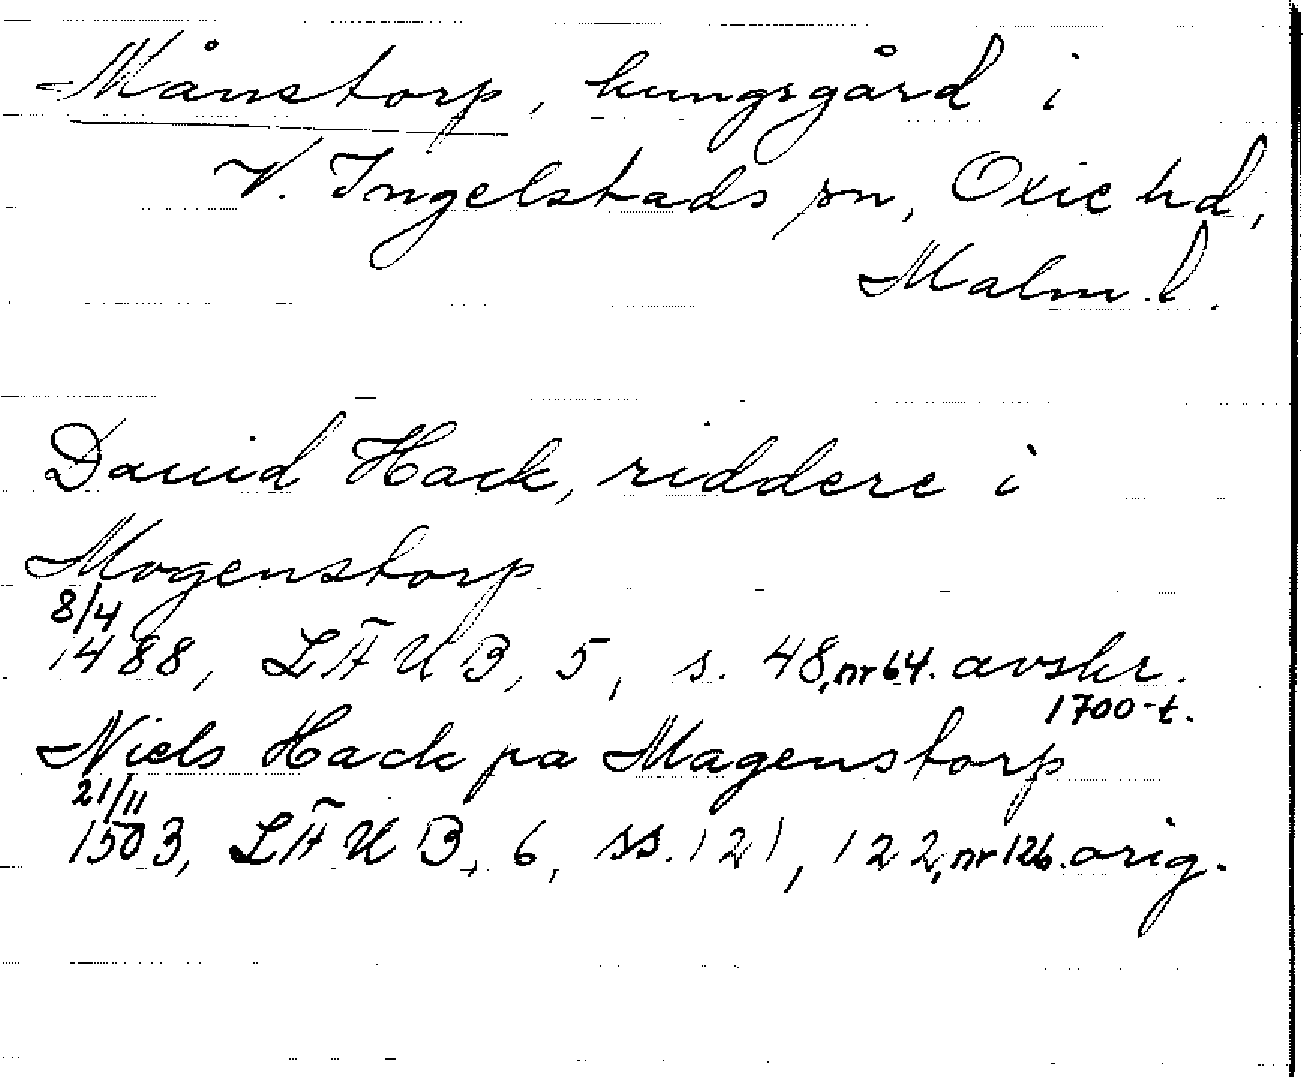 Månstorp, kungsgård i
V. Ingelstads sn, Oxie hd,
Malm. l.
David Hack, riddere i
Mogenstorp
8/4
1488, LÄUB, 5, s. 48, nr 64. avskr.
1700-t.
Niels Hack pa Magenstorp
21/11
1503, LÄUB, 6, ss. 121, 122, nr 126. orig.